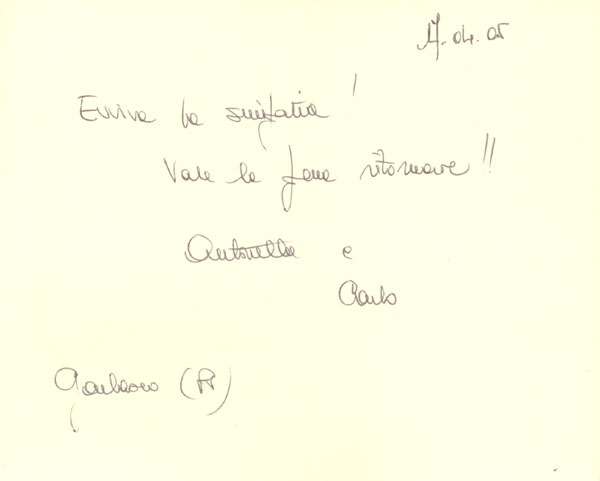 17.04.05
Evviva la simpatia!
Vale la pena ritornare!!
Antonella e
Carlo